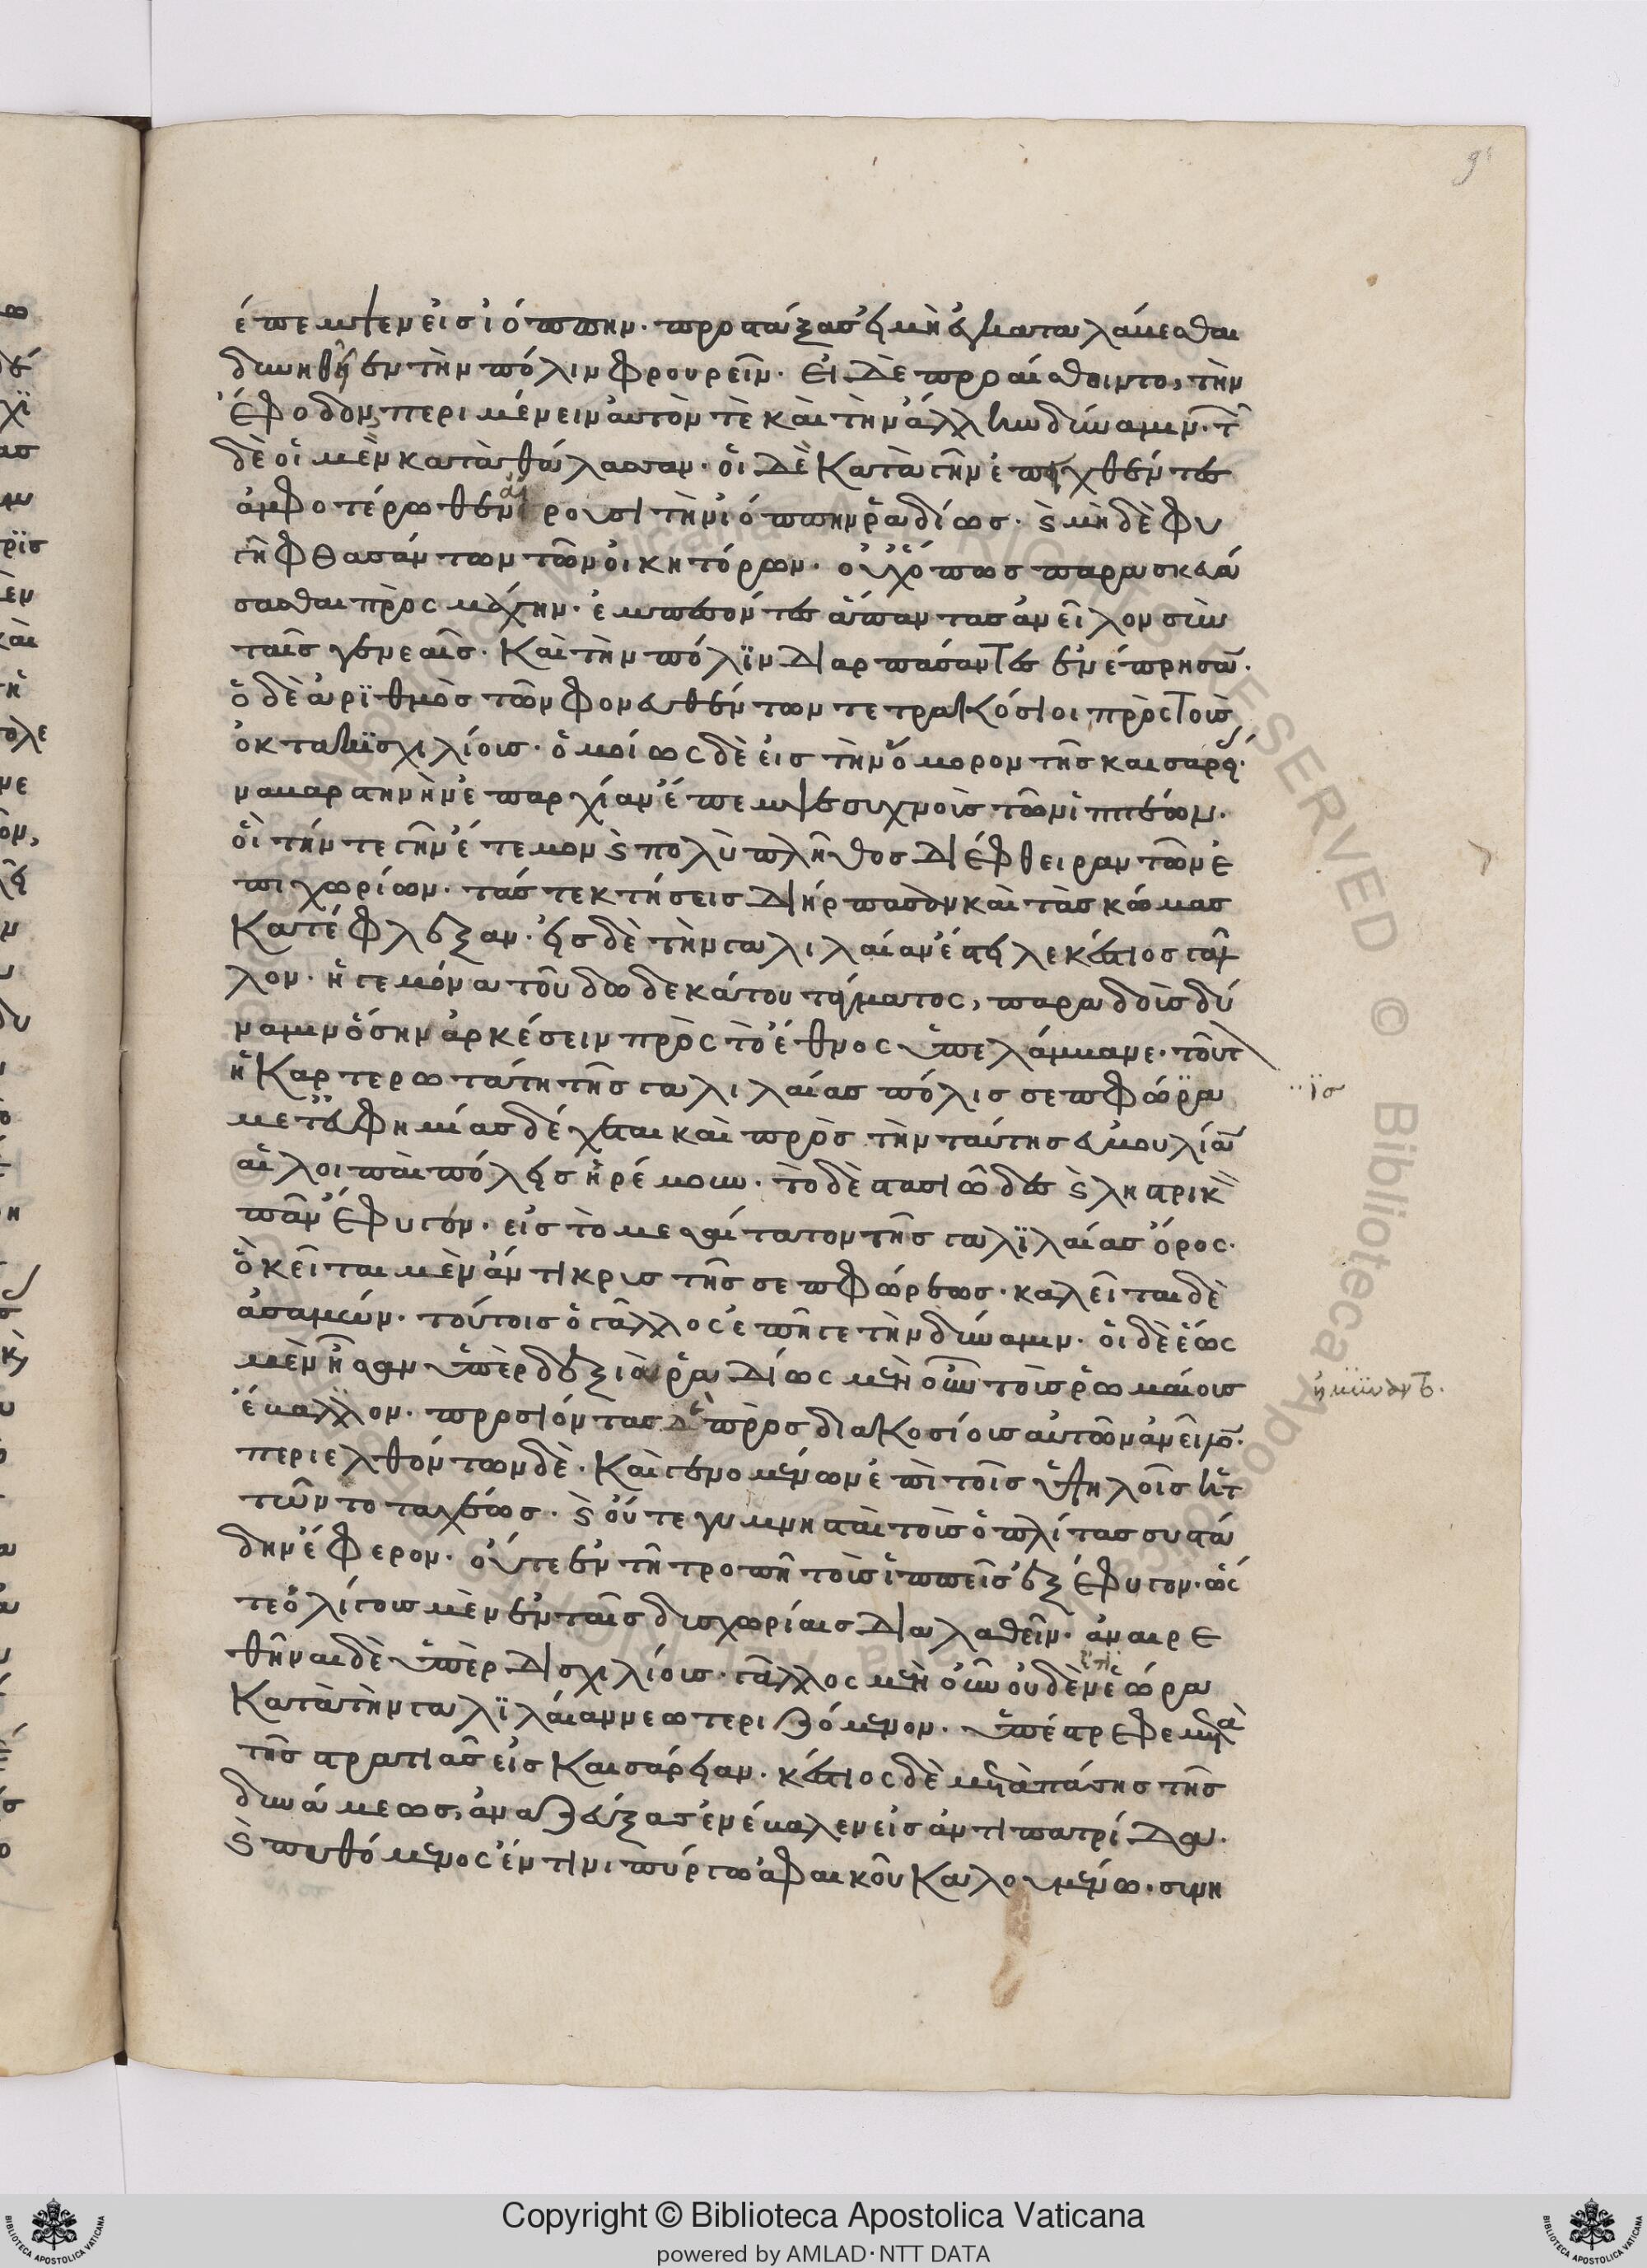 ἔπεμψεν εἰς ἰόππην· προστάξας εἰ μὲν καταλαβέσθαι
δυνηθεῖεν τὴν πόλιν φρουρεῖν· εἰ δὲ προαίσθοιντο, τὴν
ἔφοδον, περιμένειν αὐτόν τε καὶ τὴν ἄλλην δύναμιν· τ
δὲ οἱ μὲν κατὰ θάλασσαν· οἱ δὲ κατὰ γῆν ἐπειχθέντες
ἀμφοτέρωθεν αἱροῦσι τὴν ἰόππην ῥαδίως· καὶ μηδὲ φυ
γῆ φθασάντων τῶν οἰκητόρων· οὐχ ὅπως παρασκευά
σασθαι πρὸς μάχην· ἐμπεσόντες ἅπαντας ἀνεῖλον σὺν
ταῖς γενεαῖς· καὶ τὴν πόλϊν διαρπάσαντες ἐνέπρησαν·
ὁ δὲ ἀρϊθμὸς τῶν φονευθέντων τετρακόσιοι πρὸς τοῖς
ὀκτακϊσχιλίοις· ὁμοίως δὲ εἰς τὴν ὅμορον τῆς καισαρεί·
ναβαρτηνὴν ἐπαρχίαν ἔπεμψε συχνοὺς τῶν ἱππέων·
οἳ τήν τε γῆν ἔτεμον καὶ πολὺ πλῆθος διέφθειραν τῶν ἐ
πιχωρίων· τάς τε κτήσεις διήρπασον καὶ τὰς κώμας
κατέφλεξαν· εἰς δὲ τὴν γαλιλαίαν ἔστειλε κέστιος γάλ
λον· ἡγεμόνα τοῦ δωδεκάτου τάγματος, παραδοὺς δύ
ναμιν ὅσην ἀρκέσειν πρὸς τὸ ἔθνος ὑπελάμβανε· τοῦτ
ἡ καρτερωτάτη τῆς γαλιλαίας πόλις σεπφώρϊ
μετ εὐφημίας δέχεται καὶ πρὸς τὴν ταύτης εὐβουλίαν
αἱ λοιπαὶ πόλεις ἠρέμουν· τὸ δὲ στασιῶδες καὶ ληστρικὸ
πᾶν ἔφυγεν· εἰς τὸ μεσαίτατον τῆς γαλϊλαίας ὄρος·
ὃ κεῖται μὲν ἄντικρυς τῆς σεπφώρεως· καλεῖται δὲ
ἀσαμών· τούτοις ὁ γάλλος ἐπῆγε τὴν δύναμιν· οἱ δὲ ἕως
μὲν ἦσαν ὑπερδέξιοι ῥαδίως μὲν οὖν τοὺς ῥωμαίους
ἔβαλλον· προσιόντας δὲ πρὸς διακοσίους αὐτῶν ἀνεῖλον·
περιελθόντων δὲ· καὶ γενομένων ἐπὶ τοῖς ὑψηλοῖς ἡτ
τῶντο ταχέως· καὶ οὔτε γυμνῆται τοὺς ὁπλίτας συστά
δην ἔφερον· οὔτε ἐν τῆ τροπῆ τοὺς ἱππεῖς ἐξέφυγον· ὥσ
τε ὀλίγους μὲν ἐν ταῖς δυσχωρίαις διαλαθεῖν· ἀναιρε
θῆναι δὲ ὑπὲρ δισχιλίους· γάλλος μὲν οὖν οὐδὲν ἔτι ἑώρα
κατὰ τὴν γαλϊλαίαν νεωτεριζόμενον· ὑπέστρεφε μετὰ
τῆς στρατιᾶς εἰς καισάρειαν· κέστιος δὲ μετὰ πάσης τῆς
δυνάμεως, ἀναζεύξας ἐνέβαλεν εἰς ἀντιπατρίδα·
καὶ πυθόμενος ἔν τινι πύργω ἀφαικοῦ καλουμένω· συνη